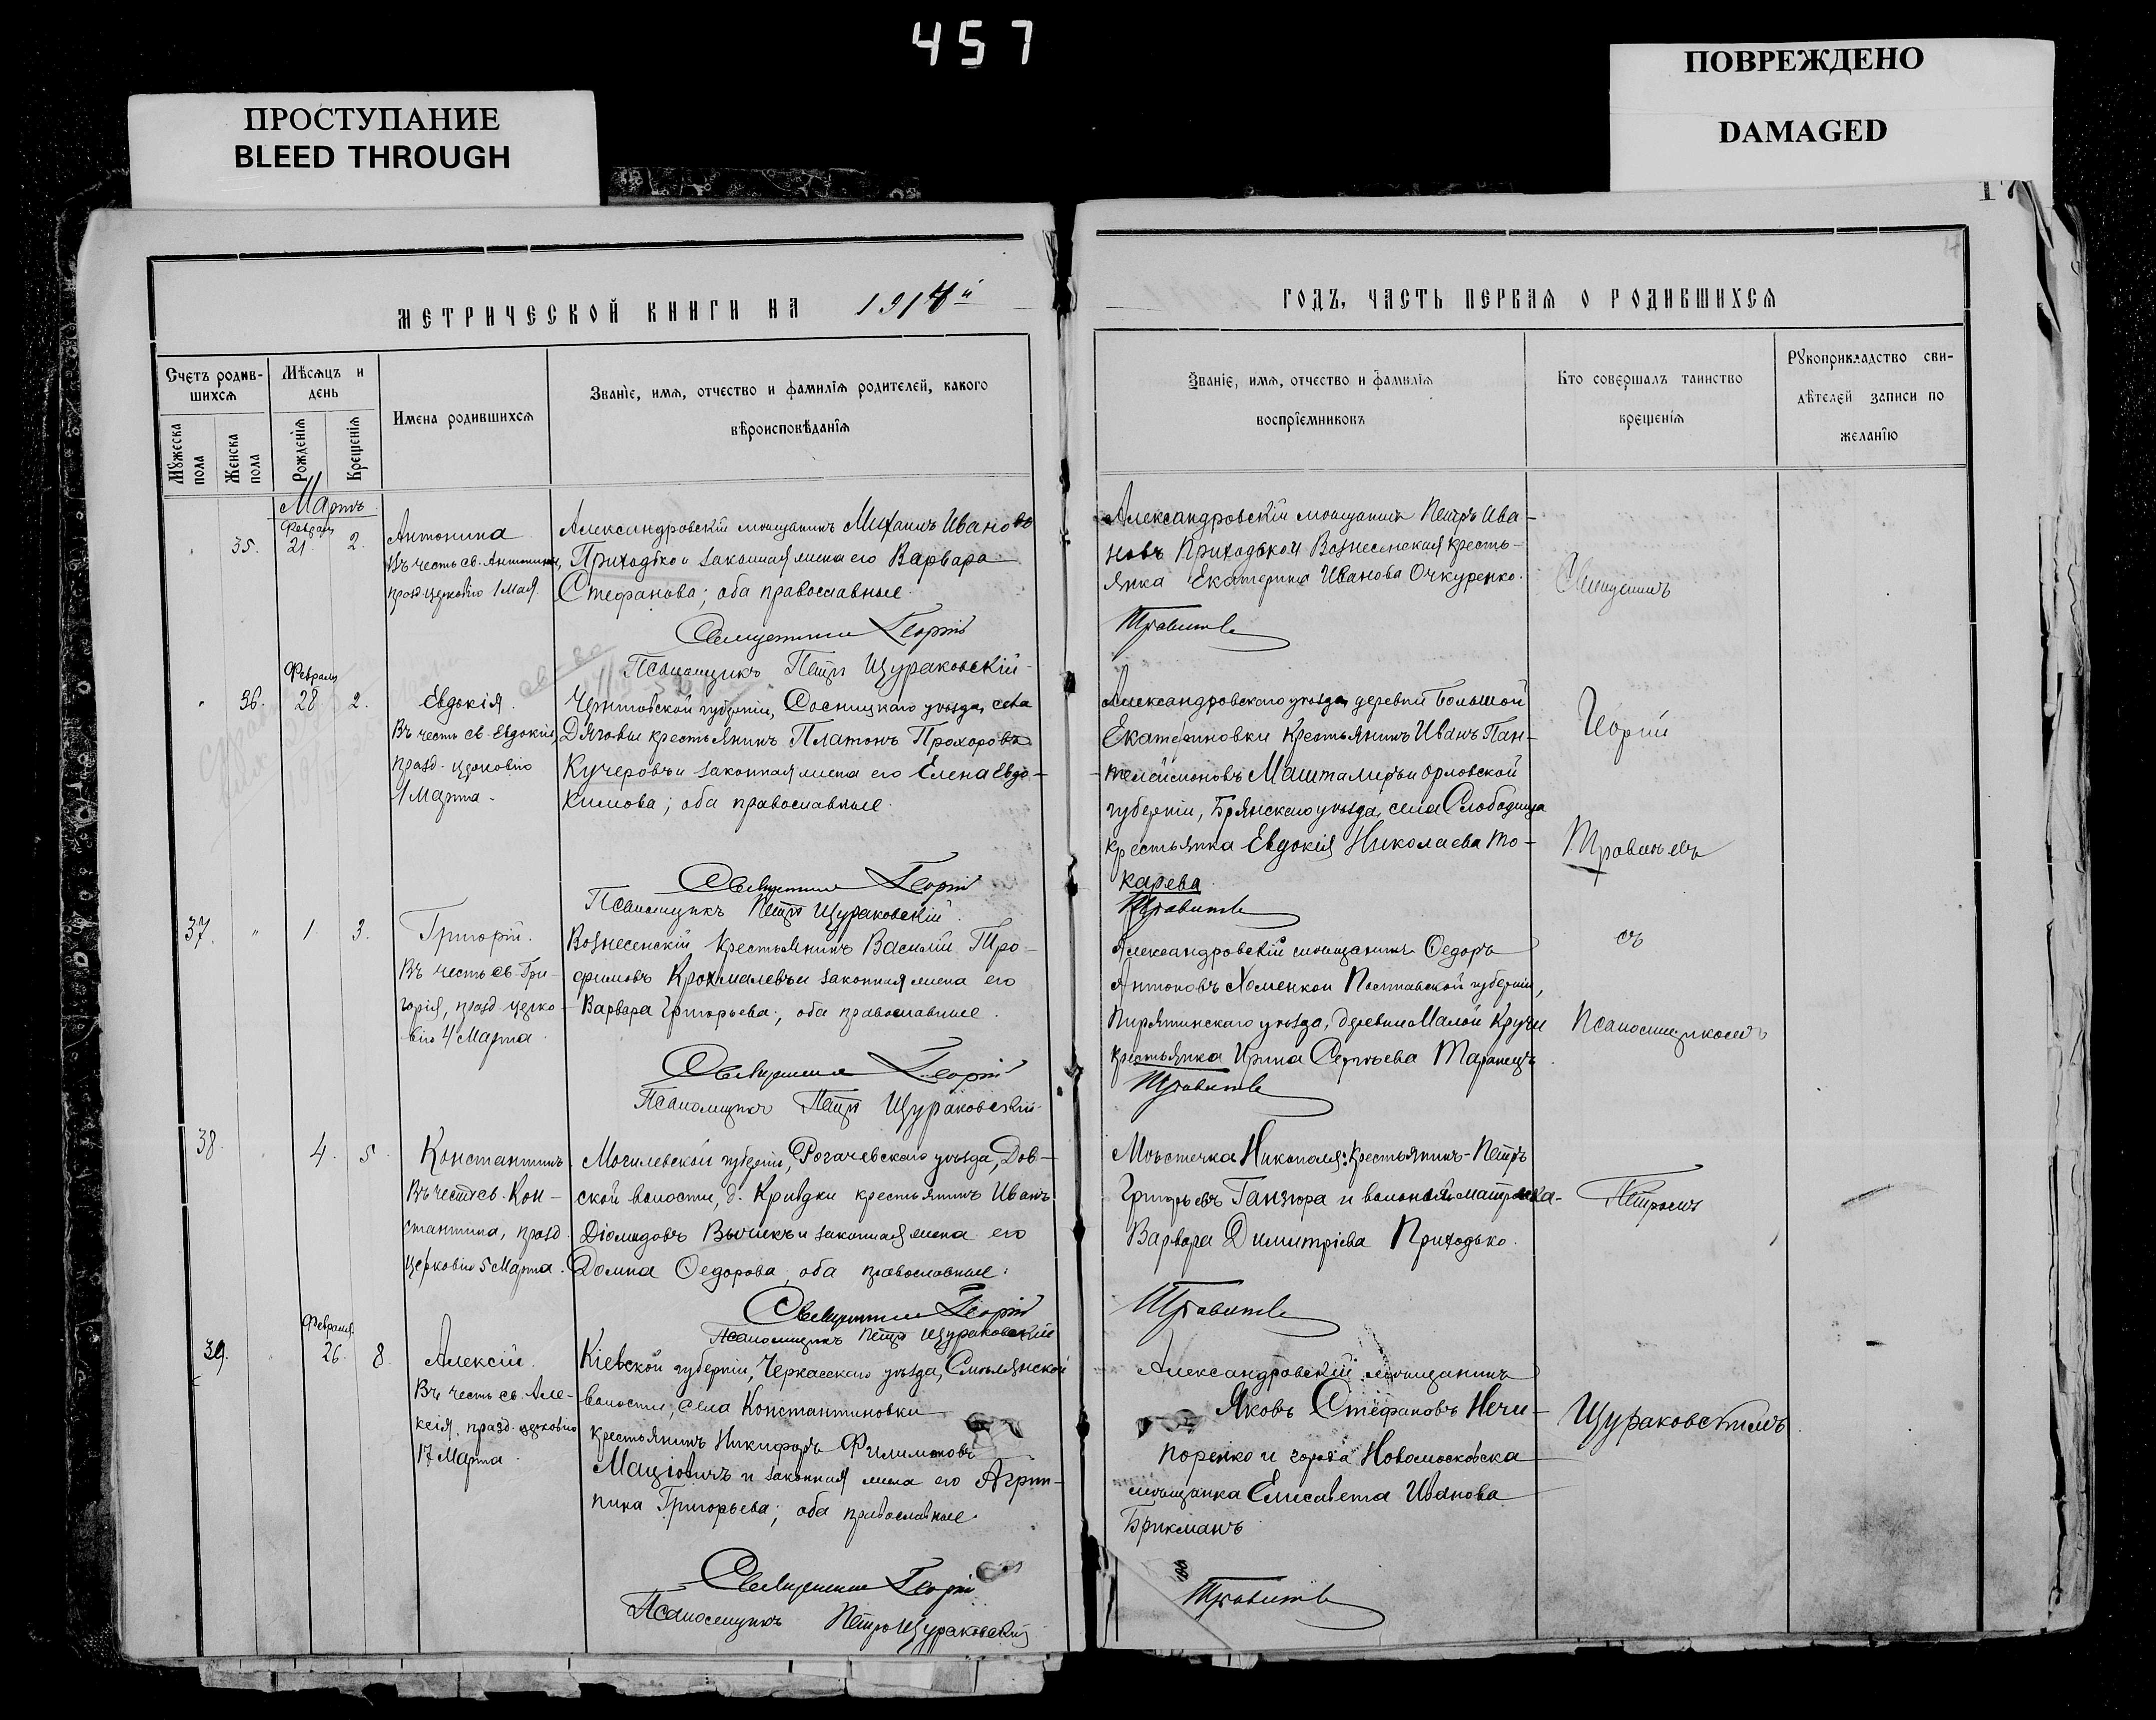 457
ПРОСТУПАНИЕ
BLEED THROUGH
ПОВРЕЖДЕНО
DAMAGED
МЕТРИЧЕСКОЙ КНИГИ НА 1914й
Счетъ родившихся
Мѣсяцъ и день
Мужеска пола
Женска пола
Рожденія
Крещенія
Имена родившихся
Званіе, имя, отчество и фамилія родителей, какого
вѣроисповѣданія
Мартъ
Февраля
35. 21. 2.
Антонина
Въ честь св. Антонины,
празд. церковію 1 Мая.
Александровскій мѣщанинъ Михаилъ Ивановъ
Приходько и законная жена его Варвара
Стефанова; оба православные.
Священникъ Георгій
Псаломщикъ Петръ Щураковскій
Февраля
36. 28 2.
Евдокія.
Въ честь св. Евдокіи,
празд. церковію
1 Марта.
Черниговской губерніи, Сосницкаго уѣзда, села
Дяговы крестьянинъ Платонъ Прохоровъ
Кучеровъ и законная жена его Елена Евдо-
кимова; оба православные.
Священникъ Георгій
Псаломщикъ Петръ Щураковскій
37. " 1 3.
Григорій.
Въ честь св. Гри-
горія, празд. церко-
вію 4 Марта.
Вознесенскій крестьянинъ Василій Тро-
фимовъ Крохмалевъ и законная жена его
Варвара Григорьева; оба православные.
Священникъ Георгій
Псаломщикъ Петръ Щураковскій
38. 4. 5
Константинъ
Въ честь св. Кон-
стантина, празд.
церковію 5 Марта.
Могилевской губерніи, Рогачевскаго уѣзда, Дов-
ской волости, д. Кривдки крестьянинъ Иванъ
Діомидовъ Вычикъ и законная жена его
Домна Ѳедорова, оба православные.
Священникъ Георгій
Псаломщикъ Петръ Щураковскій
Февраля
39. 26. 8.
Алексій.
Въ честь св. Але-
ксія, празд. церковію
17 Марта.
Кіевской губерніи, Черкасскаго уѣзда, Смѣлянской
волости, села Константиновки
крестьянинъ Никифоръ Филимоновъ
Маціовичъ и законная жена его Агрип-
пина Григорьева; оба православные.
Священникъ Георгій
Псаломщикъ Петръ Щураковскій
ГОДЪ, ЧАСТЬ ПЕРВАЯ О РОДИВШИХСЯ
Званіе, имя, отчество и фамилія
воспріемниковъ
Кто совершалъ таинство
крещенія
Рукоприкладство сви-
дѣтелей записи по
желанію
Александровскій мѣщанинъ Петръ Ива-
новъ Приходько и Вознесенская кресть-
янка Екатерина Иванова Очкуренко.
Травинъ
Александровскаго уѣзда, деревни Большой
Екатериновки крестьянинъ Иванъ Пан-
телеймоновъ Машталиръ и Орловской
губерніи, Брянскаго уѣзда, села Слободища
крестьянка Евдокія Николаева То-
карева
Александровскій мѣщанинъ Ѳедоръ
Антоновъ Хоменко и Полтавской губерніи,
Пирятинскаго уѣзда, деревни Малой Кручи
крестьянка Ирина Сергѣева Таранецъ.
Мѣстечка Никополя: крестьянинъ Петръ
Григорьевъ Ганзюра и
Варвара Димитріева Приходько.
Александровскій мѣщанинъ
Яковъ Стефановъ Нечи-
поренко и города Новомосковска
мѣщанка Елисавета Иванова
Брикманъ
Священникъ
Георгій
съ
Псаломщикомъ
Петромъ
Щураковскимъ